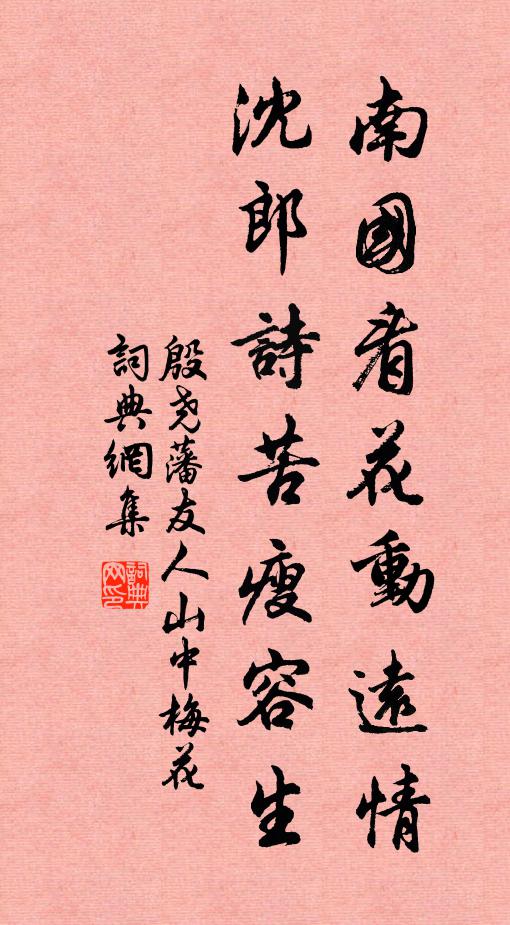 南國看花動遠情
沈郎詩苦瘦容生
殷堯藩友人山中梅花
詞典網集
詞典網印